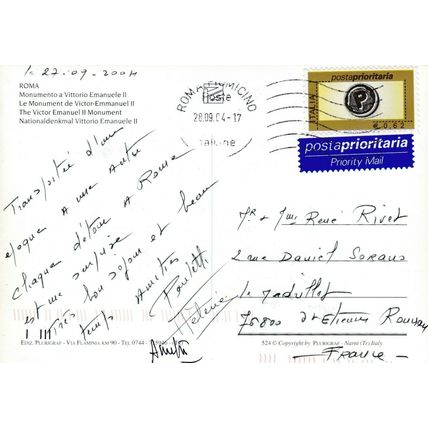 le 27.09.2004
ROMA
Monumento a Vittorio Emanuele II
Le Monument de Victor-Emmanuel II
The Victor Emanuel II Monument
Nationaldenkmal Vittorio Emanuele II
ROMA FIUMICINO
Poste
28.09.04-17
italiane
postaprioritaria
P
ITALIA
€ 0,62
postaprioritaria
Priority Mail
Transportée d'une
époque A une Autre
chaque détour A Rome
est une surprise
Très bon séjour et beau
temps Amitiés
Paulette
Hélène
Mr & Mme René Rivet
2 rue Daniel Sorano
Le Madrillet
76800 St Etienne Rouvray
France
EDIZ. PLURIGRAF - VIA FLAMINIA KM 90 - TEL. 0744
524 © Copyright by PLURIGRAF - Narni (Tr) Italy